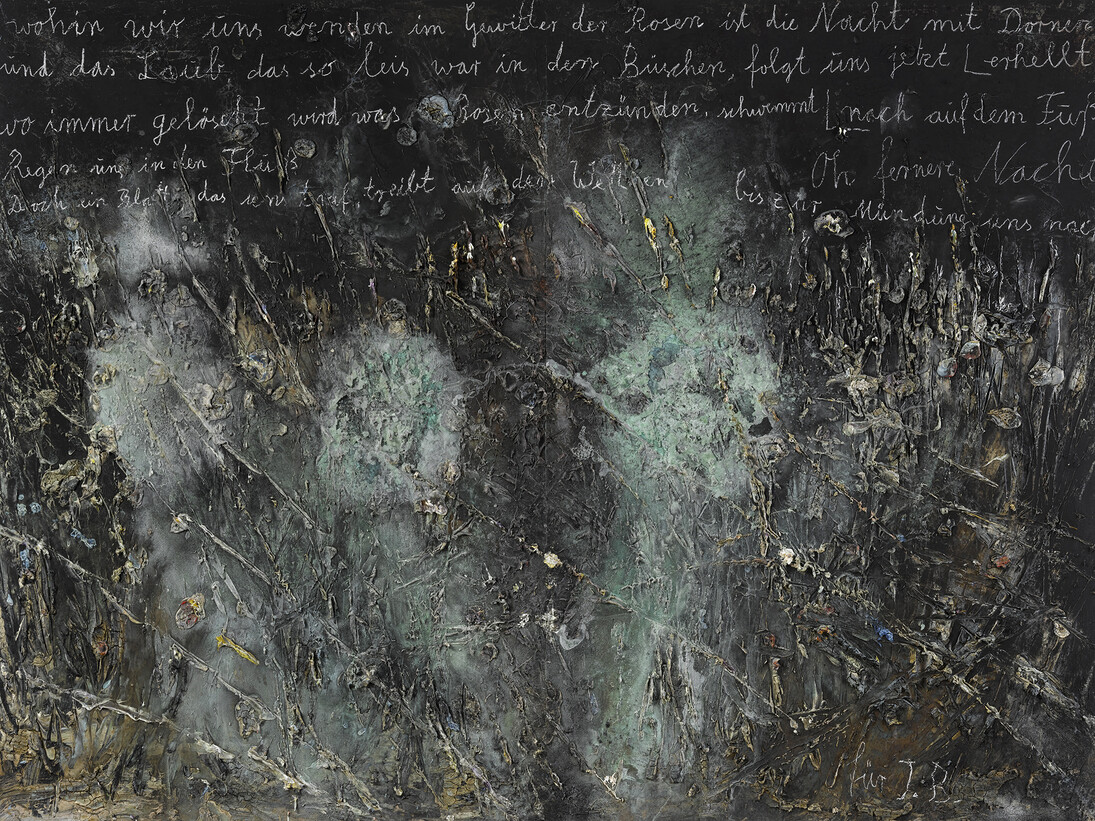 wohin wir uns wenden im Gewitter der Rosen ist die Nacht mit Dornen
und das Laub, das so leis war in den Büschen, folgt uns jetzt erhellt
wo immer gelöscht wird was Rosen entzünden, schwemmt nach auf dem Fuß
Regen uns in den Fluß Oh fernere Nacht
Doch ein Blatt das uns traf treibt auf den Wellen bis zur Mündung uns nach
für I. B.